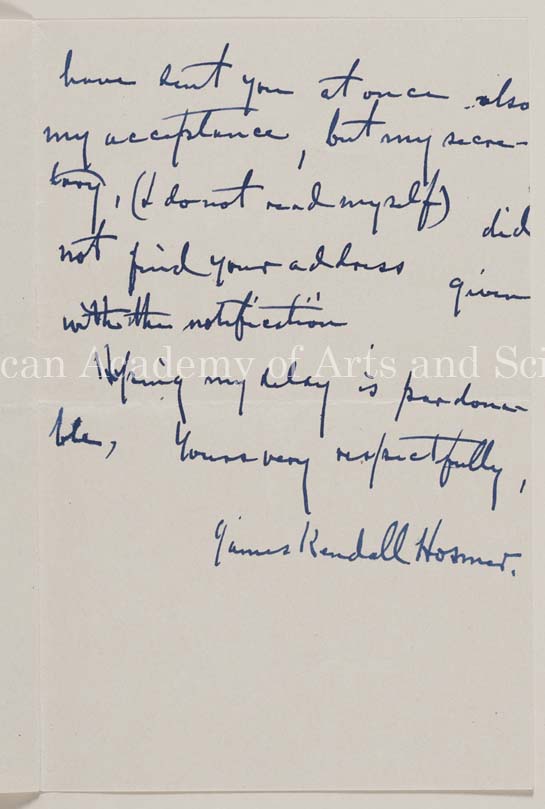 have sent you at once also
my acceptance, but my secre-
tary, (I do not read myself) did
not find your address given
with the notification
can Academy of Arts and Sci
Hoping my delay is pardona-
ble, Yours very respectfully,
James Kendall Hosmer.